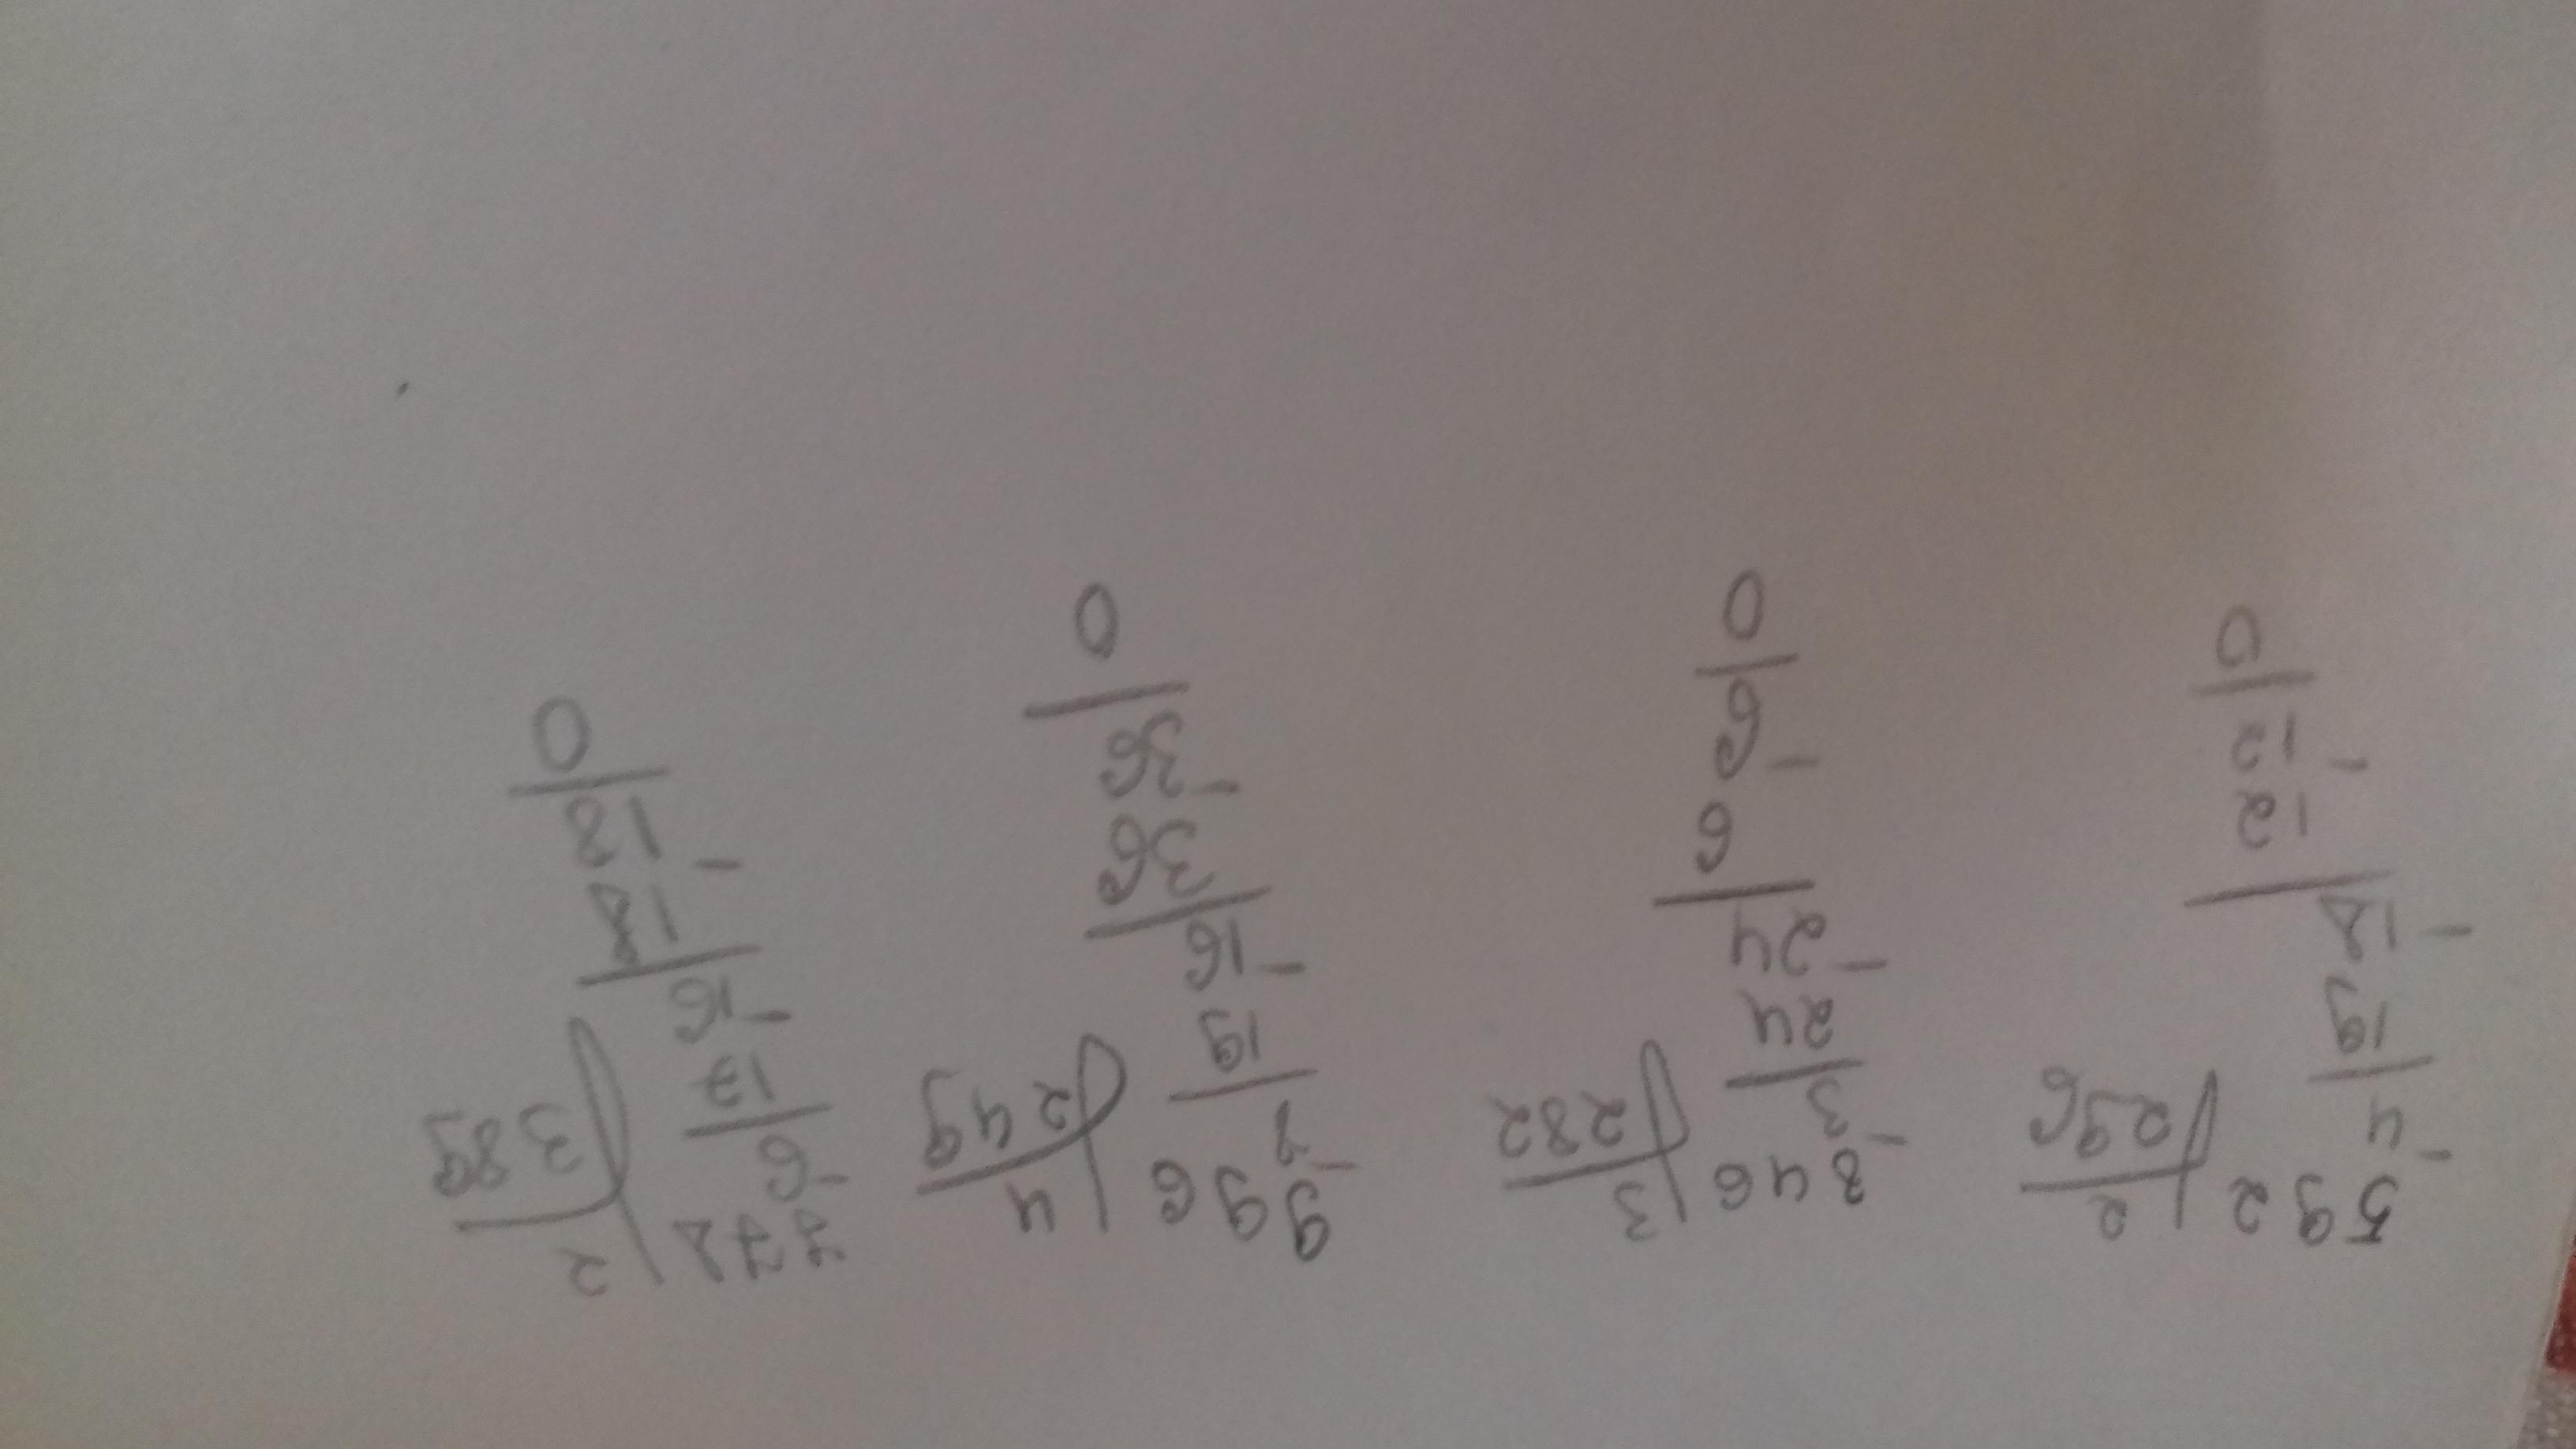 592|2
-4
296
19
-18
12
-12
0
846|3
-3
282
24
-24
6
-6
0
996|4
-8
249
19
-16
36
-36
0
778|2
-6
389
17
-16
18
-18
0